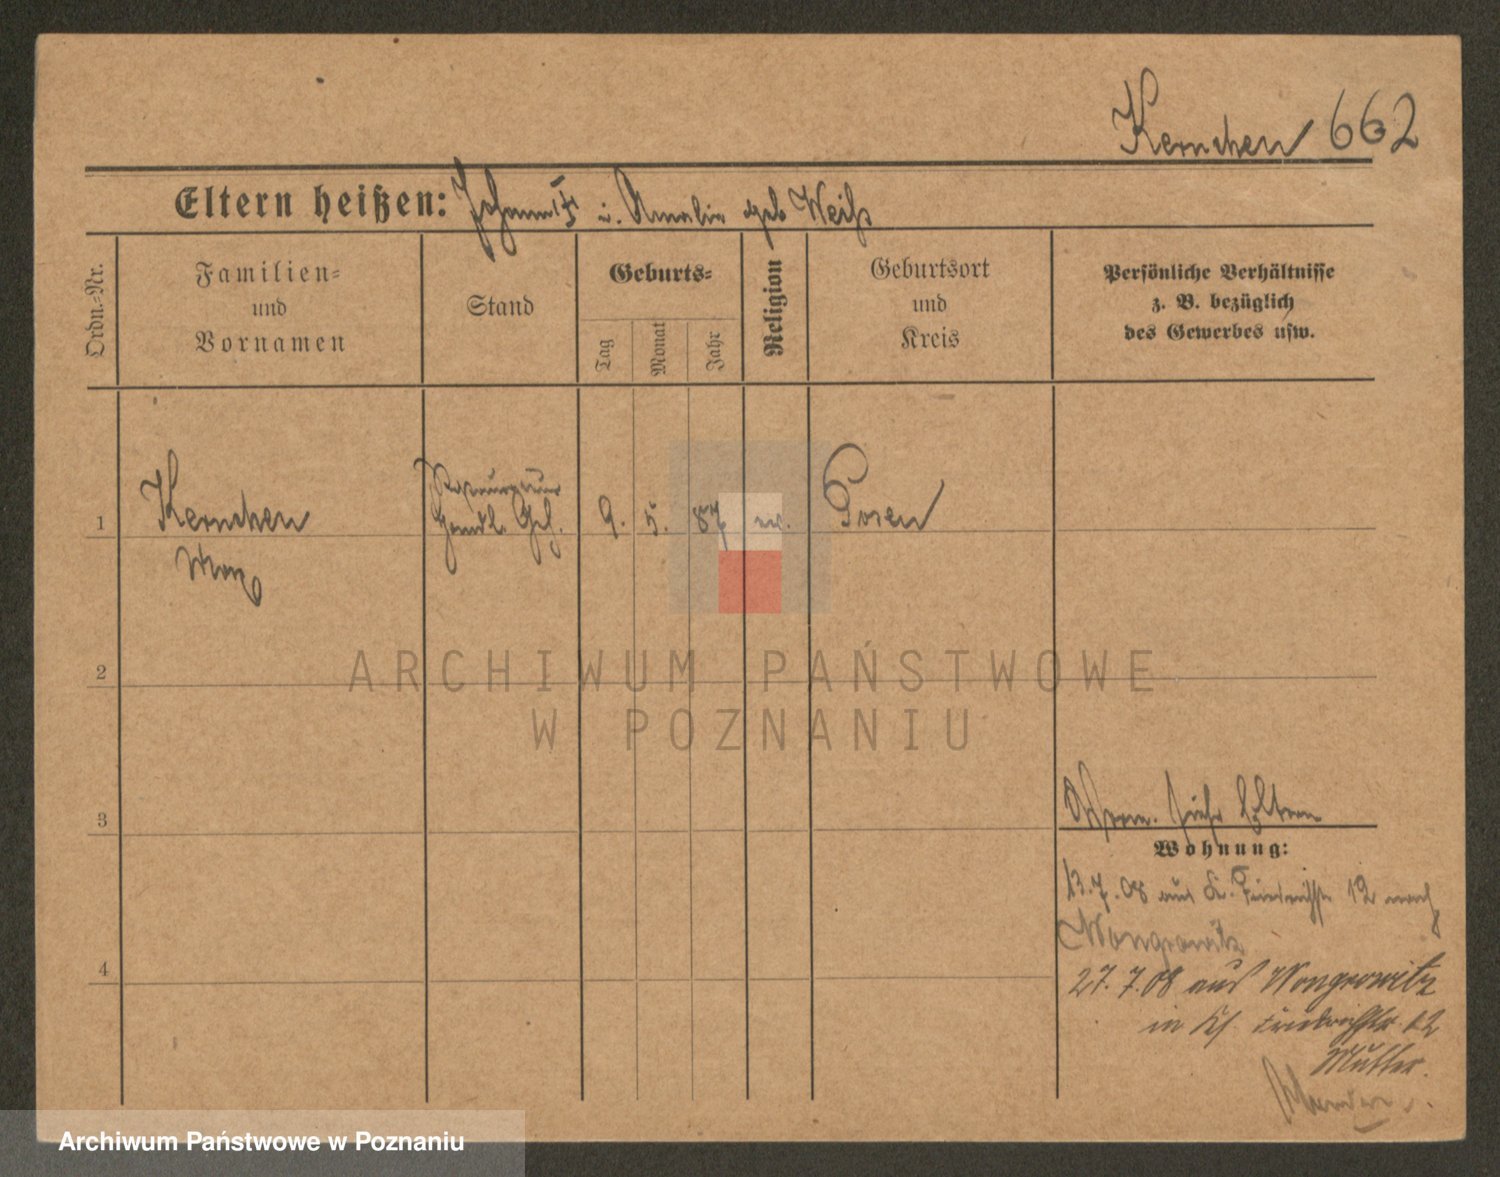 Kernchen 662
Eltern heißen: Johann u. Amalie geb Weiß
Ordn.=Nr.
Familien=
und
Vornamen
Stand
Geburts=
Tag
Monat
Jahr
Religion
Geburtsort
und
Kreis
Persönliche Verhältnisse
z. B. bezüglich
des Gewerbes usw.
1
Kernchen
Max
Handl. Geh.
9. 5. 87
Posen
2
ARCHIWUM PAŃSTWOWE
W POZNANIU
3
siehe Eltern
Wohnung:
13.7.08 aus Friedrichstr 12 nach
Wongrowitz
4
27.7.08 aus Wongrowitz
in Friedrichstr 12
Mutter.
Archiwum Państwowe w Poznaniu